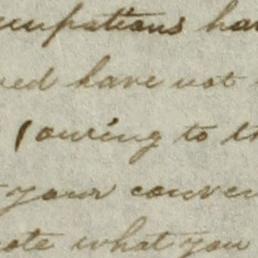 cupations ha
ved have not
(owing to th
your conven
ote what you